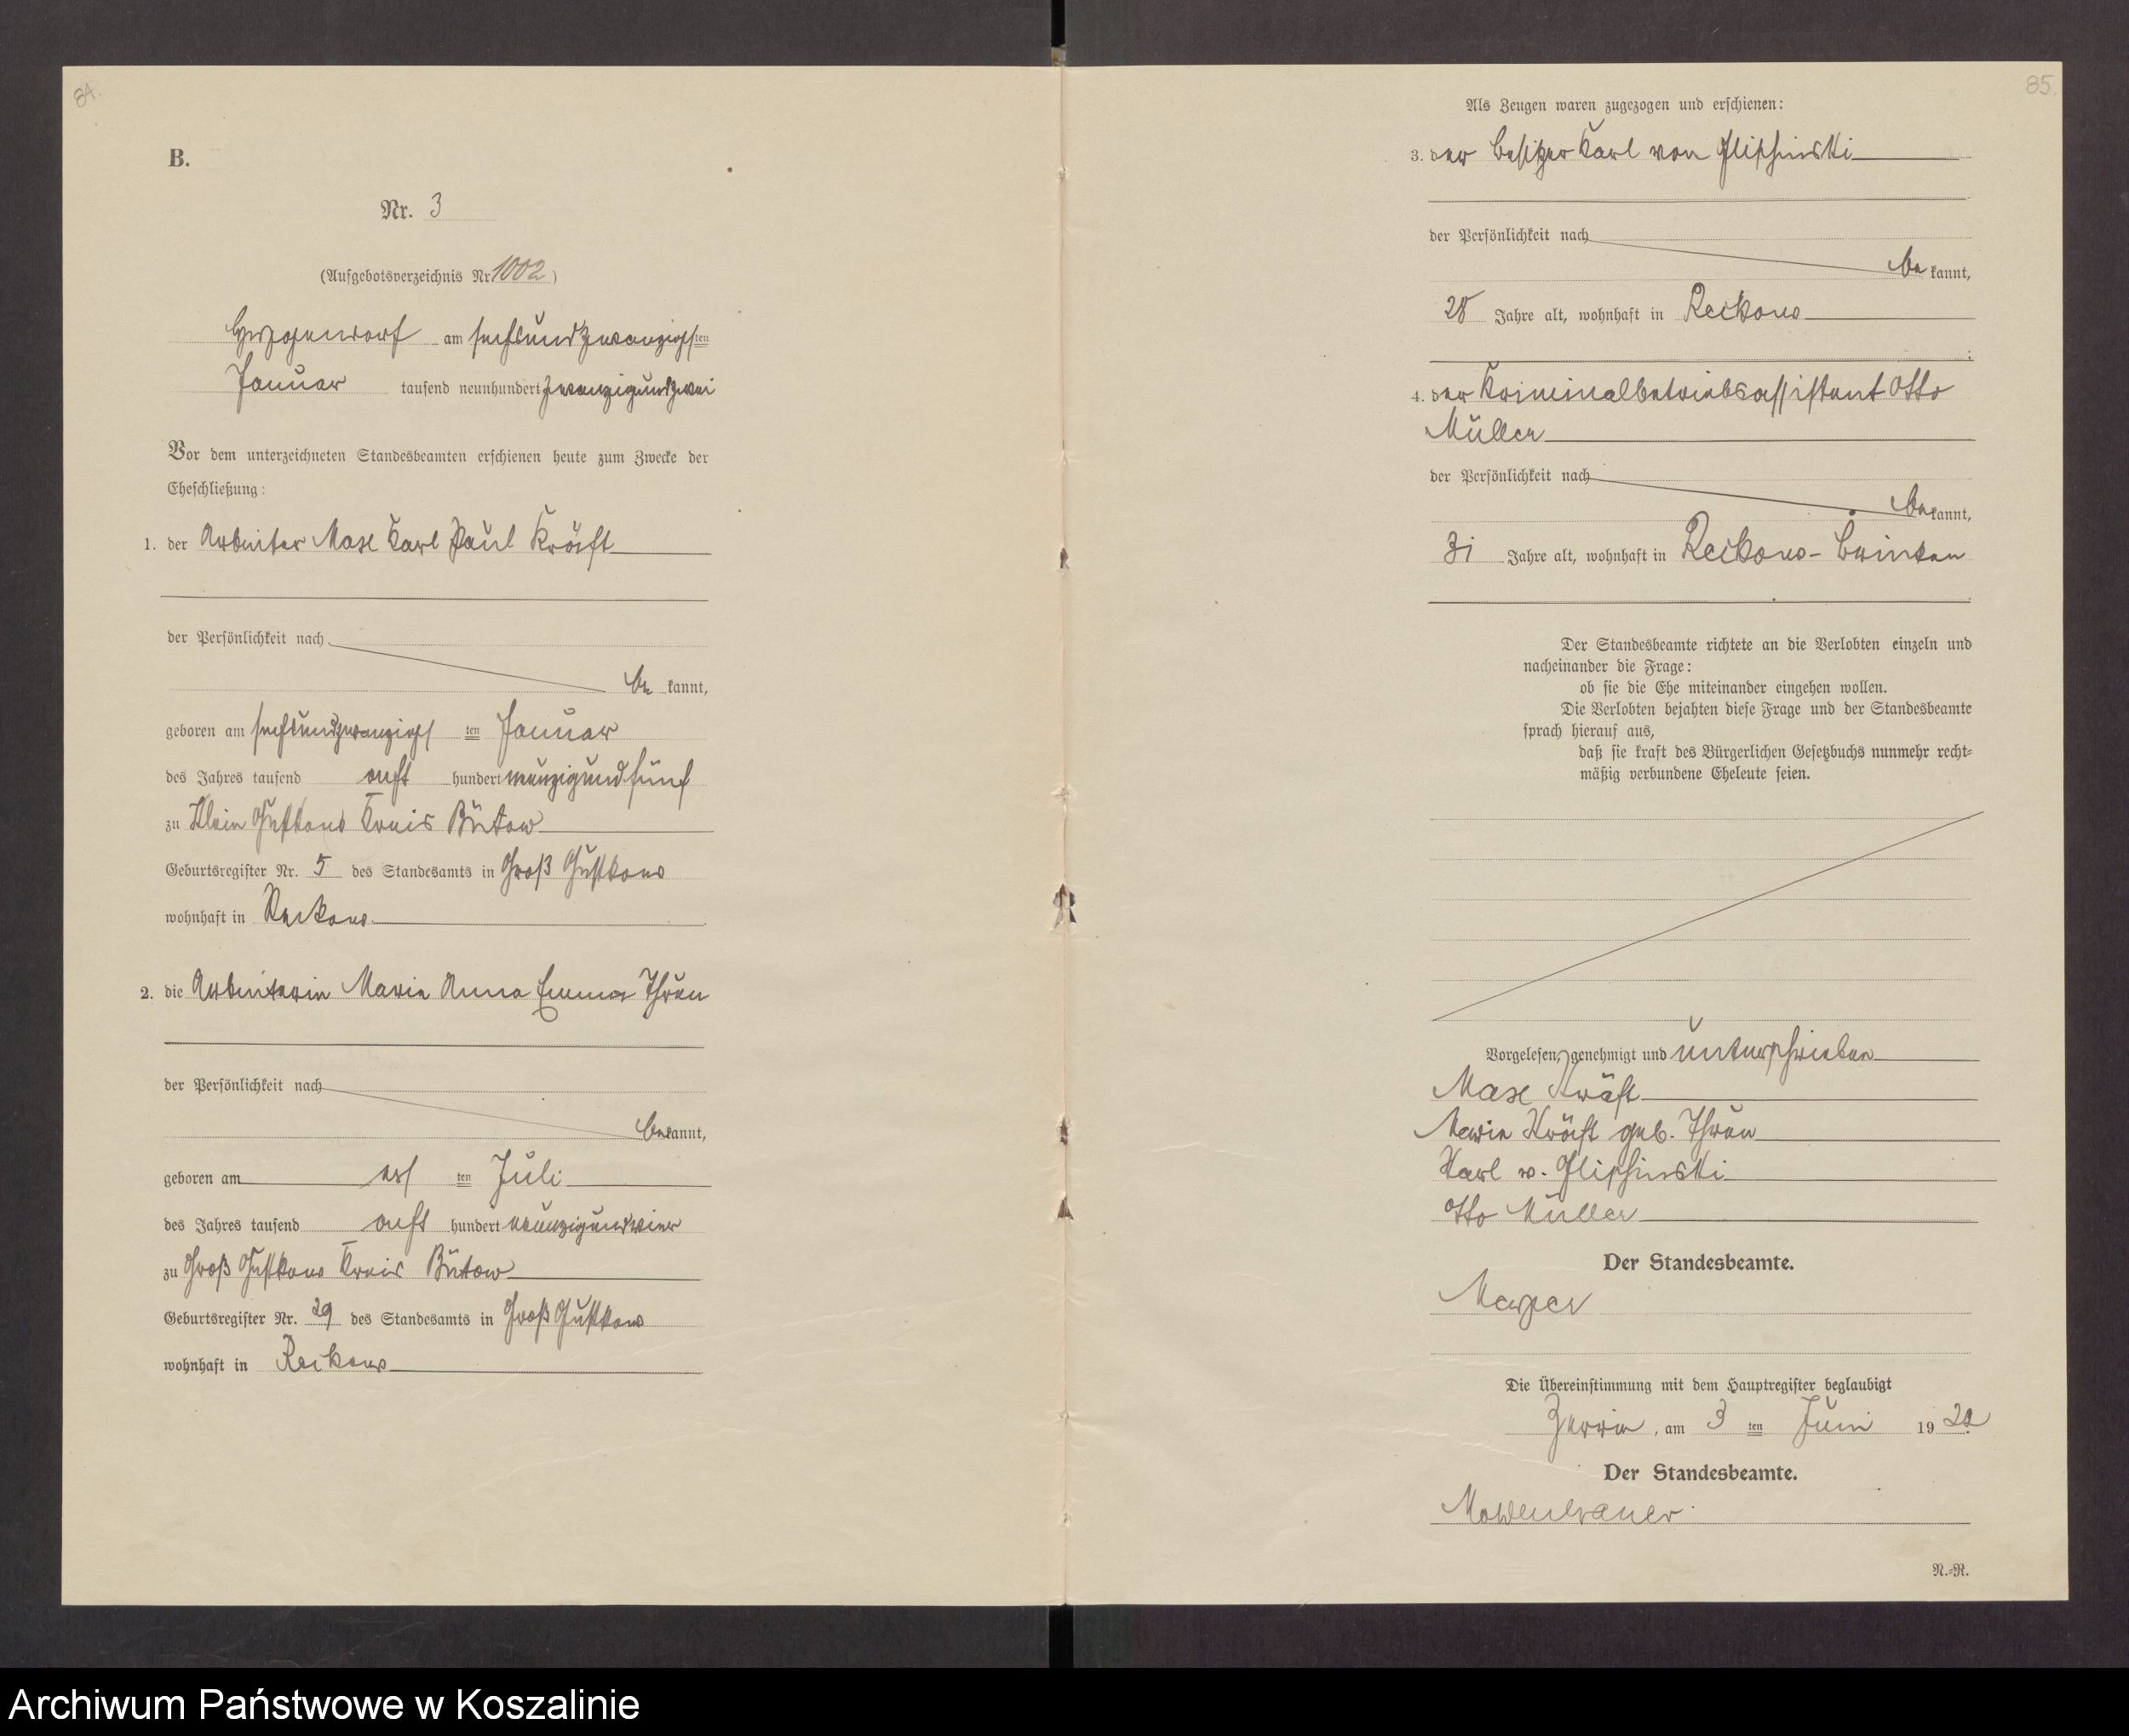 84.
B.
Nr. 3
(Aufgebotsverzeichnis Nr. 1002)
am sechsundzwanzigsten
Januar tausend neunhundert zwanzigundzwei
Vor dem unterzeichneten Standesbeamten erschienen heute zum Zwecke der
Eheschließung:
1. der Arbeiter Max Karl Paul Kräft
der Persönlichkeit nach
be kannt,
geboren am sechsundzwanzigs ten Januar
des Jahres tausend acht hundert neunzigundfünf
zu Klein Gustkow Kreis Bütow
Geburtsregister Nr. 5 des Standesamts in Groß Gustkow
wohnhaft in Reckow
2. die Arbeiterin Marie Anna Emma Thrun
der Persönlichkeit nach
be kannt,
geboren am ers ten Juli
des Jahres tausend acht hundert neunzigundvier
zu Groß Gustkow Kreis Bütow
Geburtsregister Nr. 29 des Standesamts in Groß Gustkow
wohnhaft in Reckow
85.
Als Zeugen waren zugezogen und erschienen:
3. der Besitzer Karl von
der Persönlichkeit nach
be kannt,
28 Jahre alt, wohnhaft in Reckow
;
4. der Kriminalbetriebsassistent Otto
Müller
der Persönlichkeit nach
be kannt,
31 Jahre alt, wohnhaft in Reckow-
Der Standesbeamte richtete an die Verlobten einzeln und
nacheinander die Frage:
ob sie die Ehe miteinander eingehen wollen.
Die Verlobten bejahten diese Frage und der Standesbeamte
sprach hierauf aus,
daß sie kraft des Bürgerlichen Gesetzbuchs nunmehr recht-
mäßig verbundene Eheleute seien.
Vorgelesen, genehmigt und unterschrieben
Max Kräft
Marie Kräft geb. Thrun
Karl v.
Otto Müller
Der Standesbeamte.
Die Übereinstimmung mit dem Hauptregister beglaubigt
Zerrin, am 3 ten Juni 1922
Der Standesbeamte.
N.-R.
Archiwum Państwowe w Koszalinie